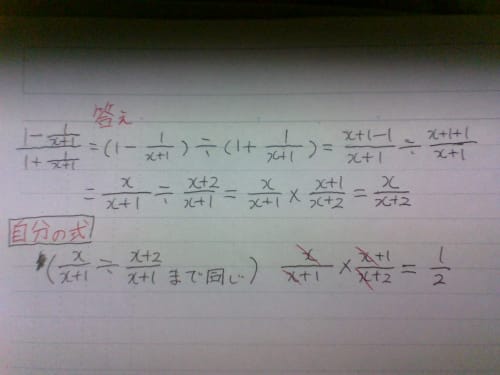 答え
\frac{1-\frac{1}{x+1}}{1+\frac{1}{x+1}} = (1-\frac{1}{x+1}) ÷ (1+\frac{1}{x+1}) = \frac{x+1-1}{x+1} ÷ \frac{x+1+1}{x+1}
= \frac{x}{x+1} ÷ \frac{x+2}{x+1} = \frac{x}{x+1} × \frac{x+1}{x+2} = \frac{x}{x+2}
自分の式
(\frac{x}{x+1} ÷ \frac{x+2}{x+1} まで同じ) \frac{x}{x+1} × \frac{x+1}{x+2} = \frac{1}{2}